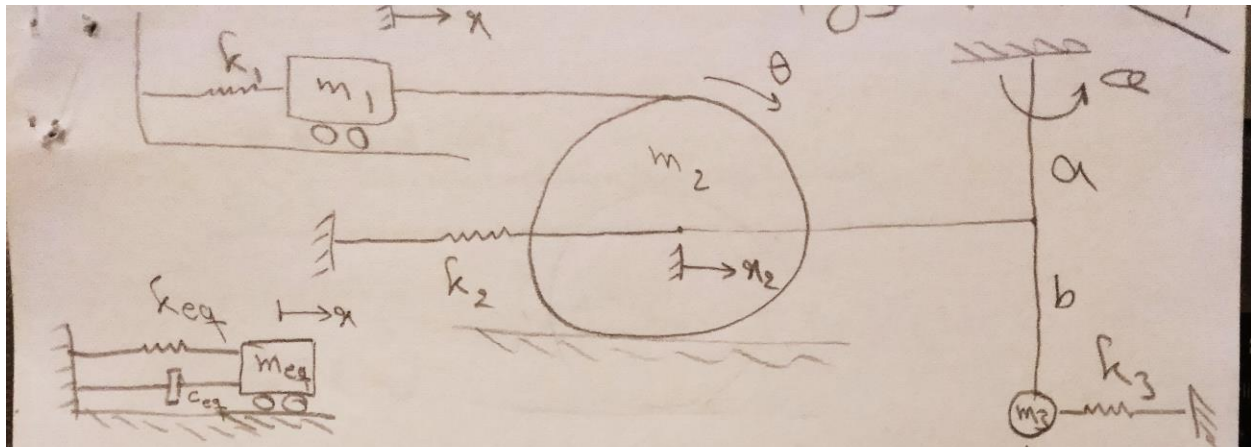 x
k₁
m₁
θ
m₂
a
k₂
x₂
b
k_eq
x
m_eq
c_eq
k₃